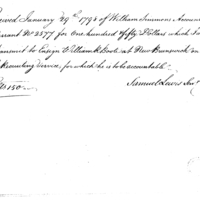 ceived January 29th 1794 of William Simmons Account
arrant No 2577 for One hundred & fifty Dollars which I am
transmit to Ensign William K Boote at New Brunswick on
Recruiting Service, for which he is to be accountable.
Dlls 150.
Samuel Lewis Junr